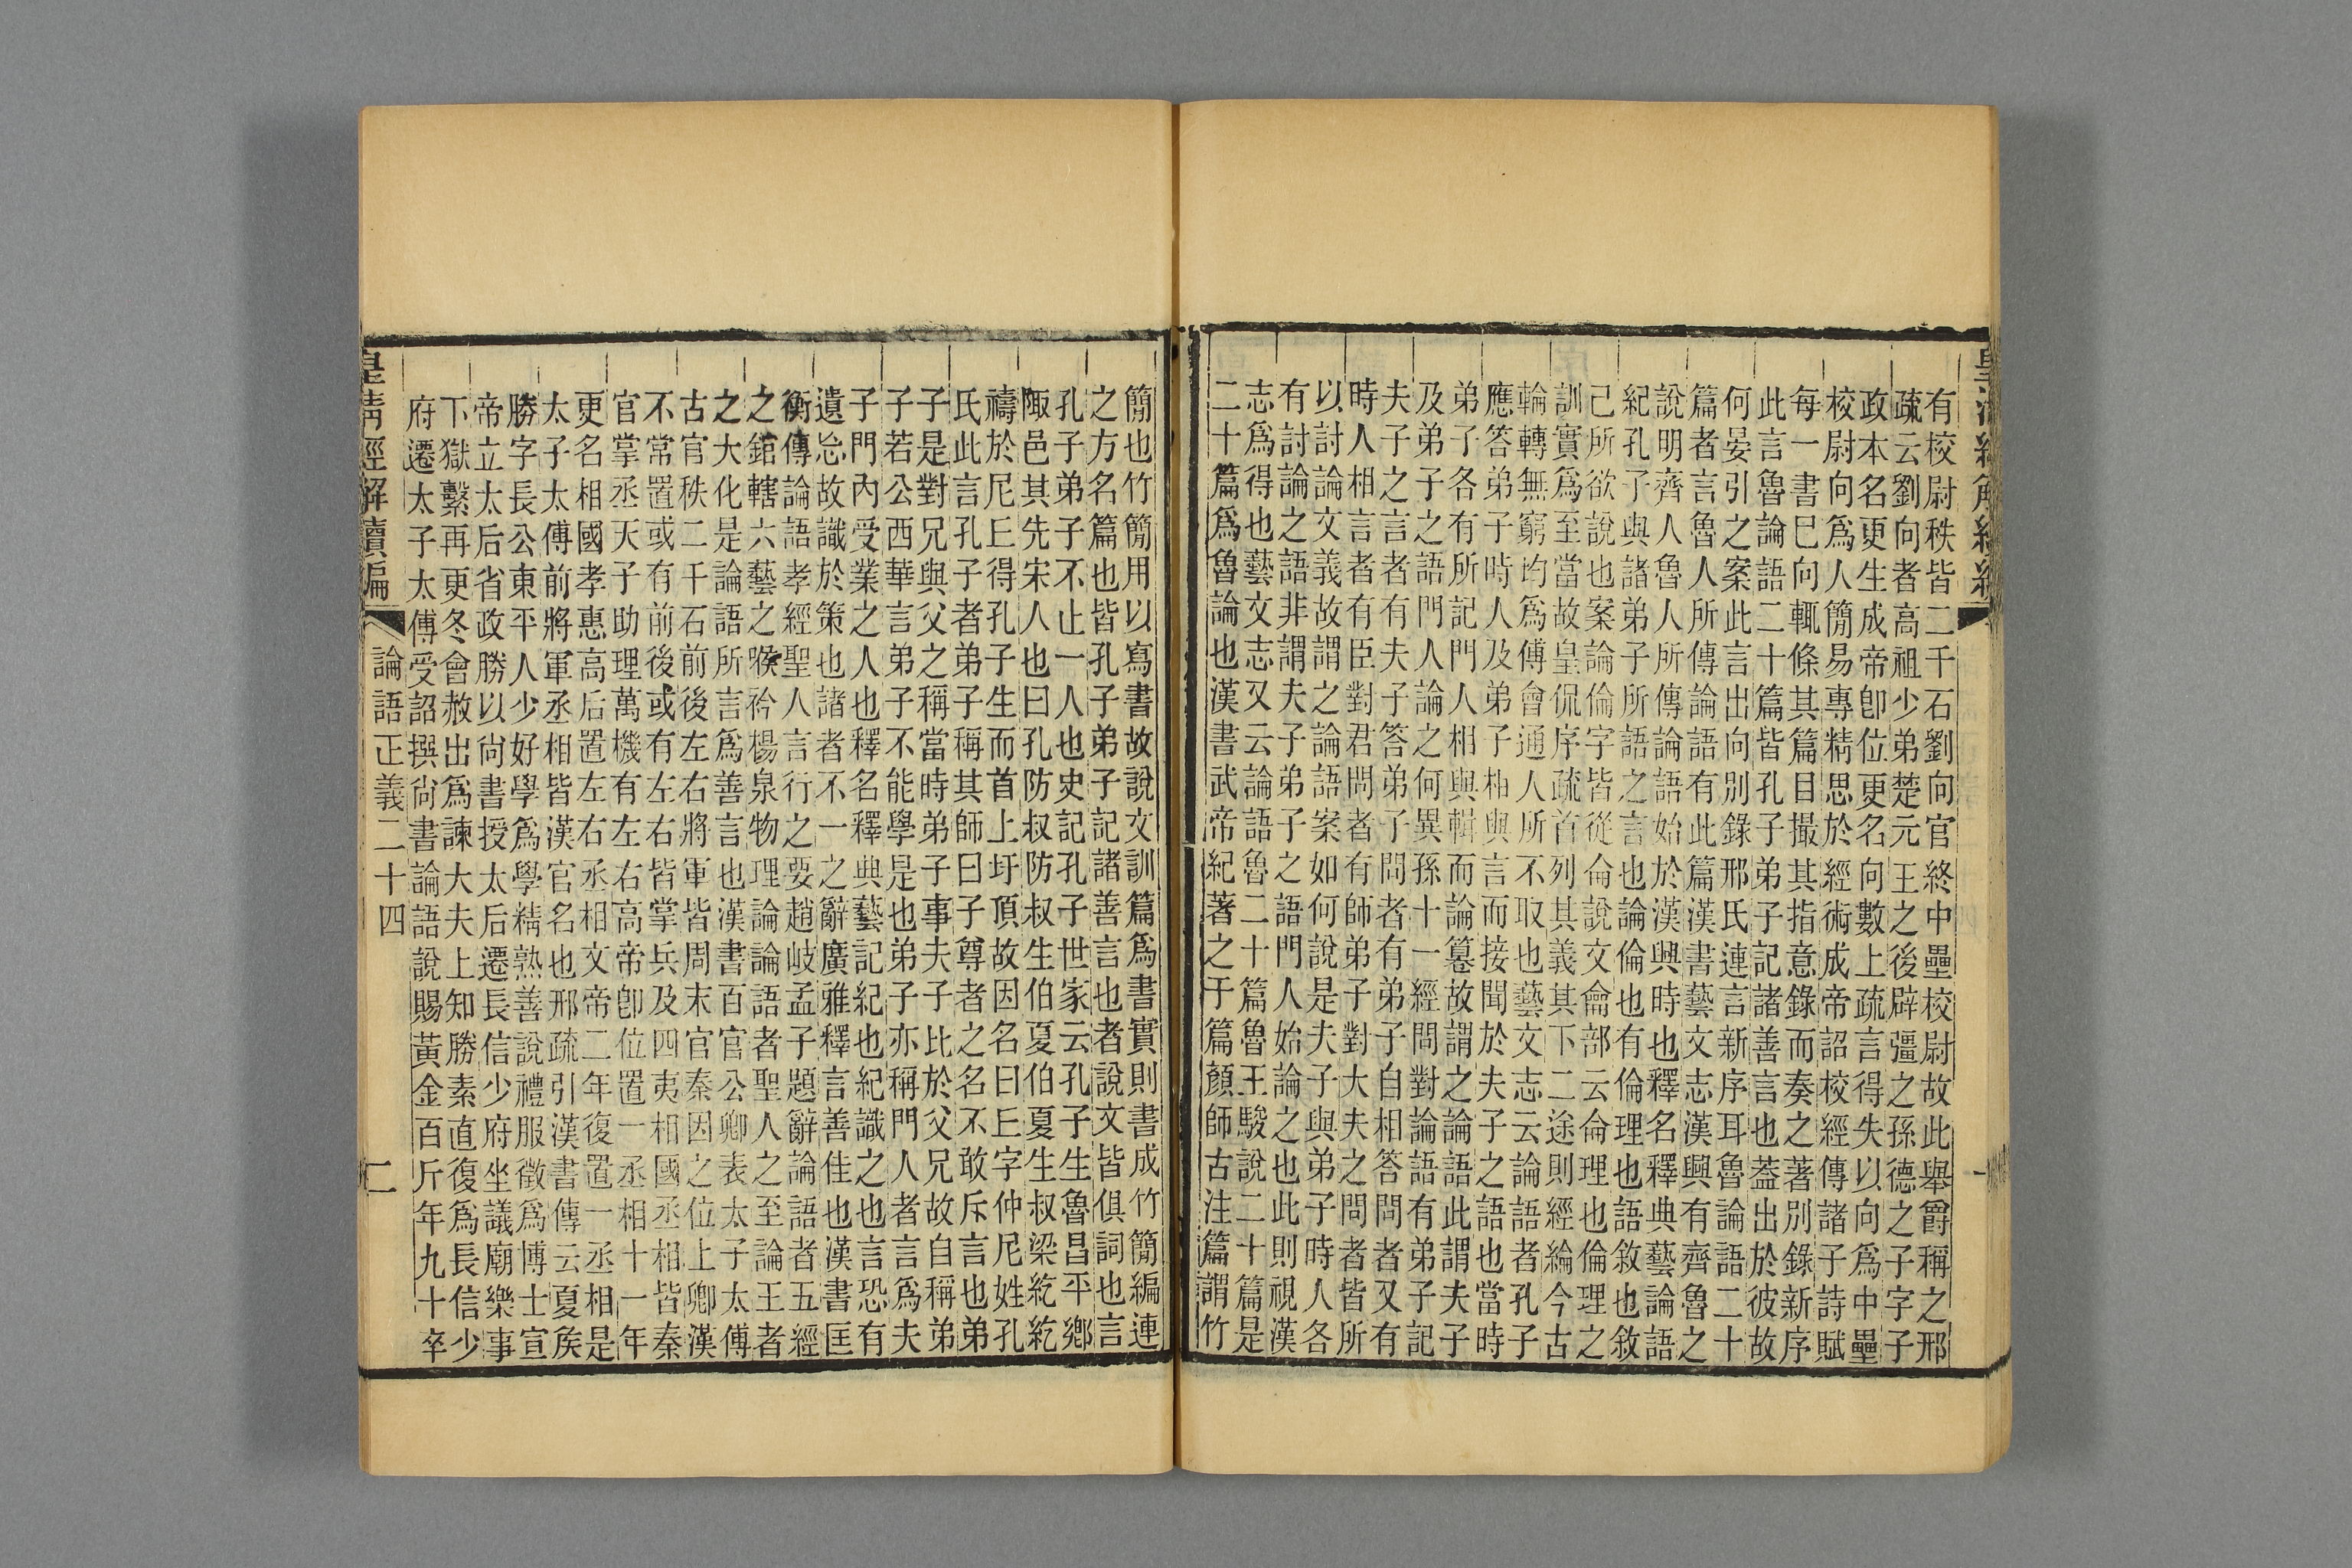 有校尉秩皆二千石劉向官終中壘校尉故此舉爵稱之邢
疏云劉向者高祖少弟楚元王之後辟彊之孫德之子字子
政本名更生成帝卽位更名向數上疏言得失以向爲中壘
校尉向爲人簡易專精思於經術成帝詔校經傳諸子詩賦
每一書巳向輒條其篇目撮其指意錄而奏之著別錄新序
此言魯論語二十篇皆孔子弟子記諸善言也葢出於彼故
何晏引之案此言出向別錄邢氏連言新序耳魯論語二十
篇者言魯人所傳論語有此篇漢書藝文志漢興有齊魯之
說明齊人魯人所傳論語始於漢興時也釋名釋典藝論語
紀孔子與諸弟子所語之言也論倫也有倫理也語敘也敘
己所欲說也案論倫字皆從侖說文侖部云侖理也倫理之
訓實爲至當故皇侃序疏首列其義其下二途則經綸今古
輪轉無窮均爲傅會通人所不取也藝文志云論語者孔子
應答弟子時人及弟子相與言而接聞於夫子之語也當時
弟子各有所記門人相與輯而論篹故謂之論語此謂夫子
及弟子之語門人論之何異孫十一經問對論語有弟子記
夫子之言者有夫子答弟子問者有弟子自相答問者又有
時人相言者有臣對君問者有師弟子對大夫之問者皆所
以討論文義故謂之論語案如何說是夫子與弟子時人各
有討論之語非謂夫子弟子之語門人始論之也此則視漢
志爲得也藝文志又云論語魯二十篇魯王駿說二十篇是
二十篇爲魯論也漢書武帝紀著之于篇顏師古注篇謂竹
簡也竹簡用以寫書故說文訓篇爲書實則書成竹簡編連
之方名篇也皆孔子弟子記諸善言也者說文皆俱詞也言
孔子弟子不止一人也史記孔子世家云孔子生魯昌平鄉
陬邑其先宋人也曰孔防叔防叔生伯夏伯夏生叔梁紇紇
禱於尼㠀得孔子生而首上圩頂故因名曰㠀字仲尼姓孔
氏此言孔子者弟子稱其師曰子尊者之名不敢斥言也弟
子是對兄與父之稱當時弟子事夫子比於父兄故自稱弟
子若公西華言弟子不能學是也弟子亦稱門人者言爲夫
子門內受業之人也釋名釋典藝記紀也紀識之也言恐有
遺忘故識於策也諸者不一之辭廣雅釋言善佳也漢書匡
衡傳論語孝經聖人言行之要趙岐孟子題辭論語者五經
之錧轄六藝之喉衿楊泉物理論論語者聖人之至論王者
之大化是論語所言爲善言也漢書百官公卿表太子太傅
古官秩二千石前後左右將軍皆周末官秦因之位上卿漢
不常置或有前後或有左右皆掌兵及四夷相國丞相皆秦
官掌丞天子助理萬機有左右高帝卽位置一丞相十一年
更名相國孝惠高后置左右丞相文帝二年復置一丞相是
太子太傅前將軍丞相皆漢官名也邢疏引漢書傳云夏矦
勝字長公東平人少好學爲學精熟善說禮服徵爲博士宣
帝立太后省政勝以尙書授太后遷長信少府坐議廟樂事
下獄繫再更冬會赦出爲諫大夫上知勝素直復爲長信少
府遷太子太傅受詔撰尙書論語說賜黃金百斤年九十卒
皇淸經解續編
論語正義二十四
二